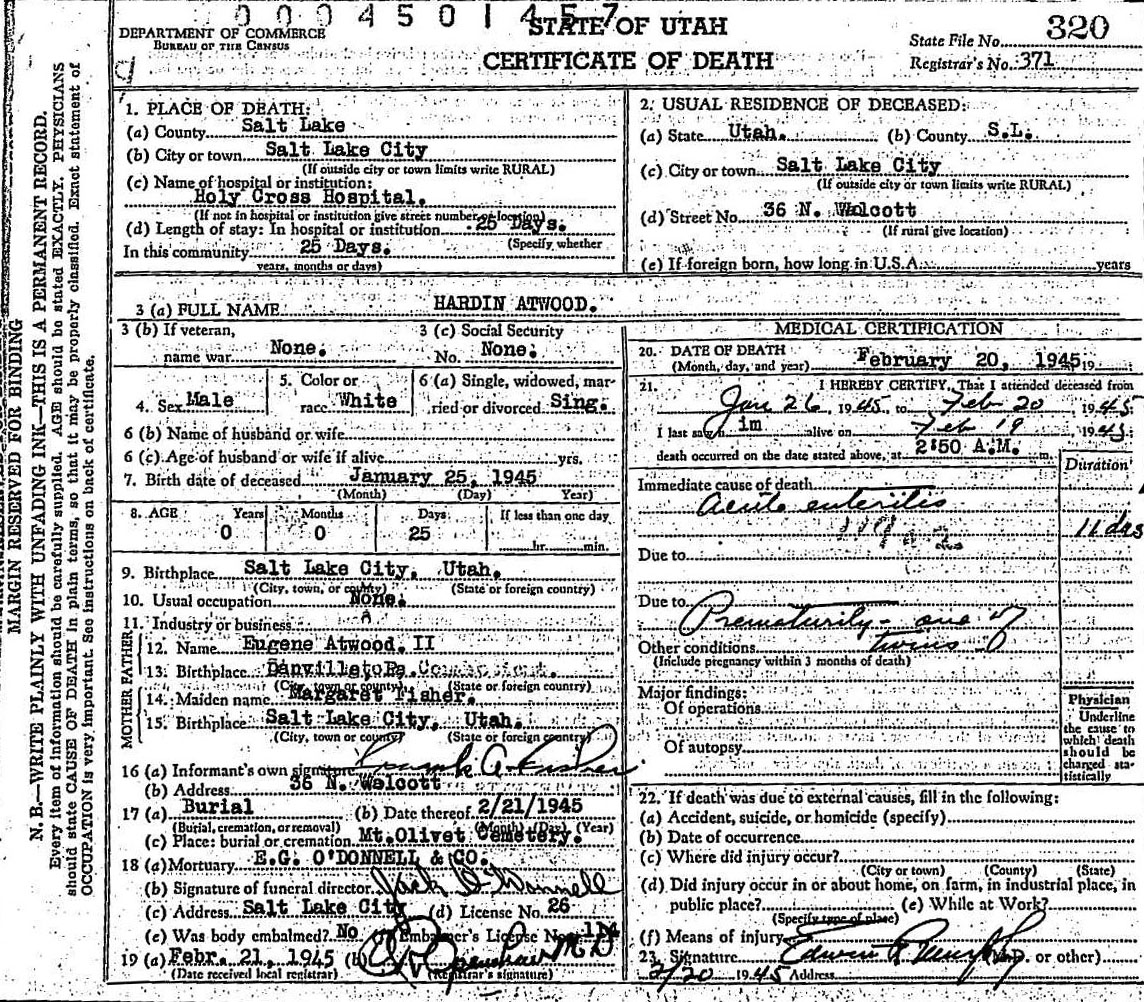 0004501457
STATE OF UTAH
CERTIFICATE OF DEATH
DEPARTMENT OF COMMERCE
BUREAU OF THE CENSUS
State File No. 320
Registrar's No. 371
MARGIN RESERVED FOR BINDING
N. B.—WRITE PLAINLY WITH UNFADING INK—THIS IS A PERMANENT RECORD.
Every item of information should be carefully supplied. AGE should be stated EXACTLY. PHYSICIANS
should state CAUSE OF DEATH in plain terms, so that it may be properly classified. Exact statement of
OCCUPATION is very important. See instructions on back of certificate.
1. PLACE OF DEATH:
(a) County Salt Lake
(b) City or town Salt Lake City
(If outside city or town limits write RURAL)
(c) Name of hospital or institution:
Holy Cross Hospital.
(If not in hospital or institution give street number or location)
(d) Length of stay: In hospital or institution 25 Days.
(Specify whether
In this community 25 Days.
years, months or days)
2. USUAL RESIDENCE OF DECEASED:
(a) State Utah. (b) County S.L.
(c) City or town Salt Lake City
(If outside city or town limits write RURAL)
(d) Street No. 36 N. Wolcott
(If rural give location)
(e) If foreign born, how long in U.S.A. years
3 (a) FULL NAME HARDIN ATWOOD.
3 (b) If veteran, name war None.
3 (c) Social Security No. None.
4. Sex Male
5. Color or race White
6 (a) Single, widowed, married or divorced Sing.
6 (b) Name of husband or wife
6 (c) Age of husband or wife if alive yrs.
7. Birth date of deceased January 25, 1945
(Month) (Day) Year)
8. AGE Years Months Days If less than one day
0 0 25 hr. min.
9. Birthplace Salt Lake City, Utah.
(City, town, or county) (State or foreign country)
10. Usual occupation None.
11. Industry or business
FATHER
12. Name Eugene Atwood II
13. Birthplace
(City, town or county) (State or foreign country)
MOTHER
14. Maiden name Margaret Fisher.
15. Birthplace Salt Lake City, Utah.
(City, town or county) (State or foreign country)
16 (a) Informant's own signature Frank A Fisher
(b) Address 36 N. Wolcott
17 (a) Burial (b) Date thereof 2/21/1945
(Burial, cremation, or removal) (Month) (Day) (Year)
(c) Place: burial or cremation Mt. Olivet Cemetery.
18 (a) Mortuary E.G. O'DONNELL & CO.
(b) Signature of funeral director Jack O'Donnell
(c) Address Salt Lake City (d) License No. 26
(e) Was body embalmed? No Embalmer's License No. 114
19 (a) Febr. 21, 1945 (b) M D
(Date received local registrar) (Registrar's signature)
MEDICAL CERTIFICATION
20. DATE OF DEATH February 20, 1945 19
(Month, day, and year)
21. I HEREBY CERTIFY, That I attended deceased from
Jan 26, 1945, to Feb 20 1945
I last saw him alive on Feb 19, 1945
death occurred on the date stated above, at 2:50 A.M. m.
Duration
Immediate cause of death
Acute enteritis 11 das
Due to
Due to
Prematurity - one of
Other conditions twins
(Include pregnancy within 3 months of death)
Major findings:
Of operations
Of autopsy
Physician
Underline
the cause to
which death
should be
charged sta-
tistically
22. If death was due to external causes, fill in the following:
(a) Accident, suicide, or homicide (specify)
(b) Date of occurrence
(c) Where did injury occur?
(City or town) (County) (State)
(d) Did injury occur in or about home, on farm, in industrial place, in
public place? (e) While at Work?
(Specify type of place)
(f) Means of injury
23. Signature Edwin R. Murphy (M.D. or other)
2/20 1945 Address